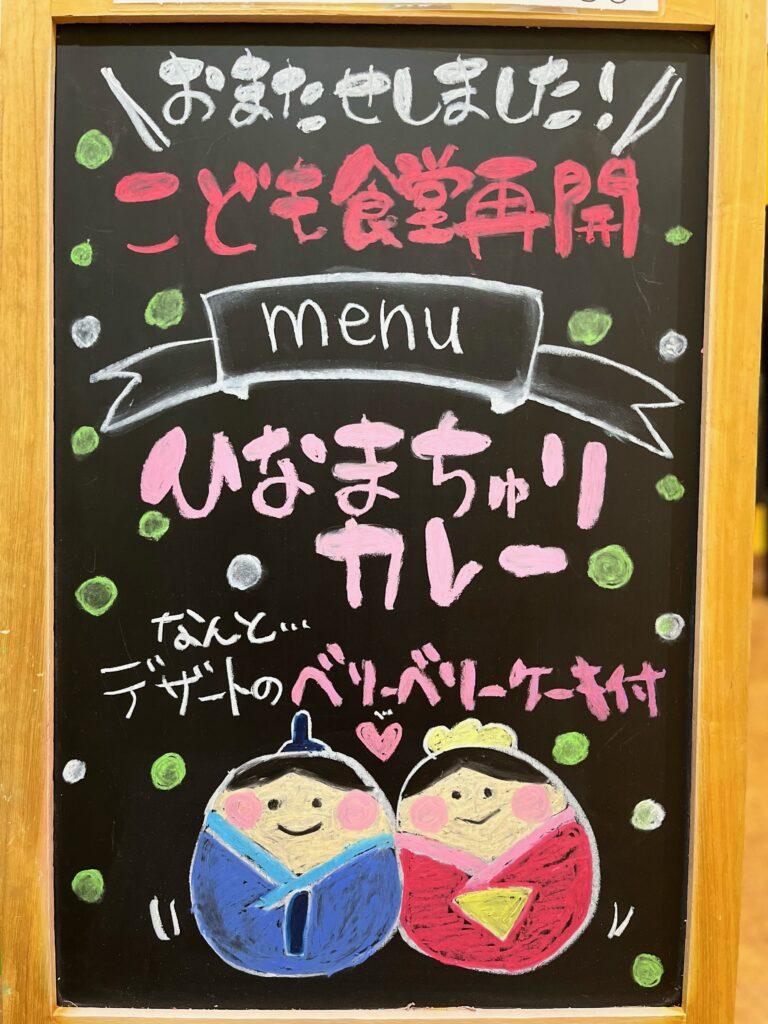 \おまたせしました！/
こども食堂再開
menu
ひなまちゅり
カレー
なんと…
デザートのベリーベリーケーキ付